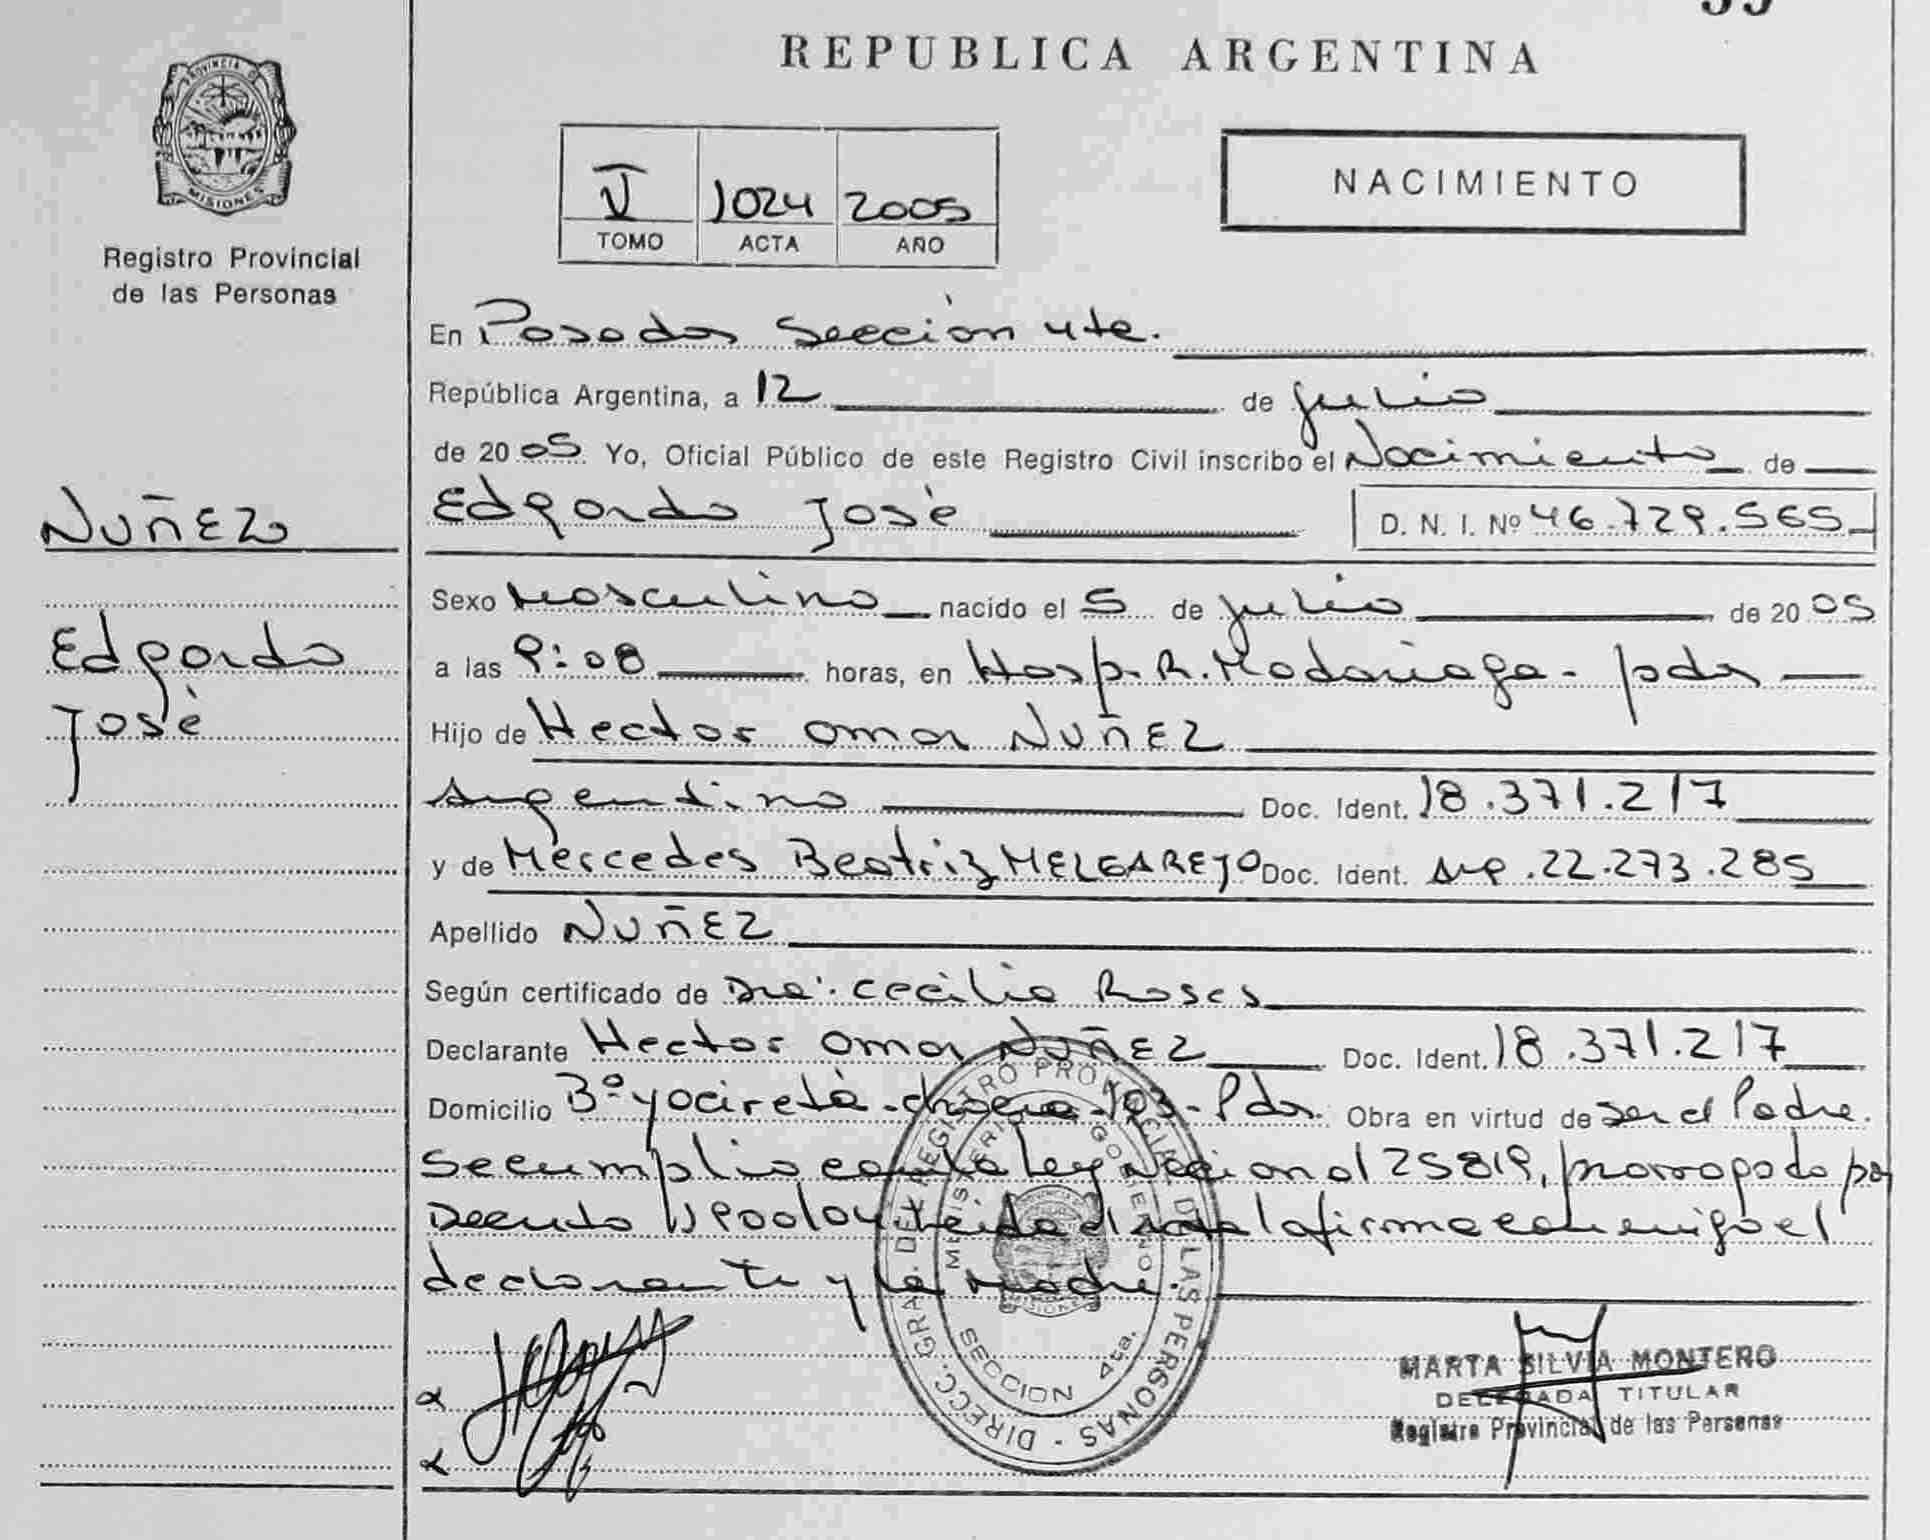 REPUBLICA ARGENTINA
PROVINCIA DE
MISIONES
Registro Provincial
de las Personas
V 1024 2005
TOMO ACTA AÑO
NACIMIENTO
En Posadas Sección 4ta.
República Argentina, a 12 de Julio
de 2005 Yo, Oficial Público de este Registro Civil inscribo el Nacimiento de
NUÑEZ
Edgardo José D. N. I. Nº 46.729.565
Sexo Masculino nacido el 5 de Julio de 2005
Edgardo
José
a las 9:08 horas, en Hosp. R. Madariaga - pdas
Hijo de Hector Omar NUÑEZ
Argentino Doc. Ident. 18.371.217
y de Mercedes Beatriz MELGAREJO Doc. Ident. Arg. 22.273.285
Apellido NUÑEZ
Según certificado de Dra. Cecilia Roses
Declarante Hector Omar NUÑEZ Doc. Ident. 18.371.217
Domicilio Bº Yacireta - chacra 103 - Pdas. Obra en virtud de ser el Padre.
Se cumplio con la ley Nacional 25819, prorrogado por
Decreto Leida el acta la firma conmigo el
declarante y la madre.
DIRECC. GRAL. DEL REGISTRO PROVINCIAL DE LAS PERSONAS
MINISTERIO GOBIERNO
SECCION 4ta.
MARTA SILVIA MONTERO
DELEGADA TITULAR
Registro Provincial de las Personas